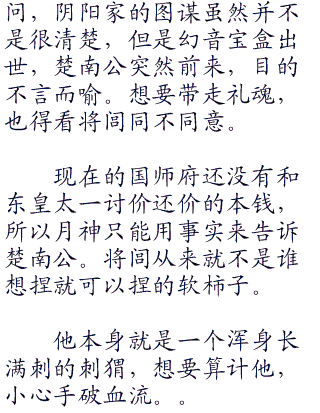 问，阴阳家的图谋虽然并不
是很清楚，但是幻音宝盒出
世，楚南公突然前来，目的
不言而喻。想要带走礼魂，
也得看将闾同不同意。
现在的国师府还没有和
东皇太一讨价还价的本钱，
所以月神只能用事实来告诉
楚南公。将闾从来就不是谁
想捏就可以捏的软柿子。
他本身就是一个浑身长
满刺的刺猬，想要算计他，
小心手破血流。。